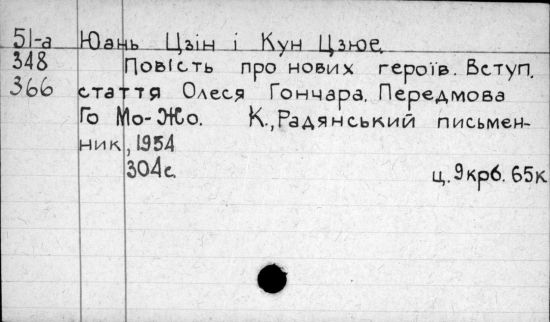 51-а Юань Цзін і Кун Цзюе
348 Повість про нових героїв. Вступ.
366 стаття Олеся Гончара. Передмова
Го Мо-Жо. К., Радянський письмен-
ник, 1954
304с. ц. 9крб. 65к